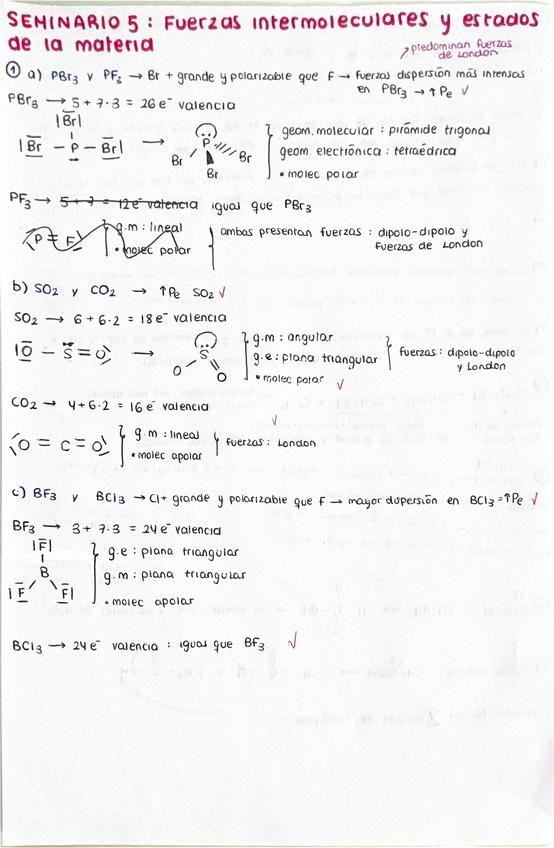 SEMINARIO 5 : Fuerzas intermoleculares y estados
de la materia
predominan fuerzas
de London
① a) PBr3 y PF3 → Br + grande y polarizable que F → fuerzas dispersión más intensas
en PBr3 → ↑Pe √
PBr3 → 5 + 7·3 = 26 e⁻ valencia
|Br|
|Br – P – Br| →
P
Br Br
Br
geom. molecular : pirámide trigonal
geom. electrónica : tetraédrica
• molec polar
PF3 → 5 + 7 = 12 e⁻ valencia igual que PBr3
(P ≡ F)
g.m : lineal
• molec polar
ambas presentan fuerzas : dipolo-dipolo y
fuerzas de London
b) SO2 y CO2 → ↑Pe SO2 √
SO2 → 6 + 6·2 = 18 e⁻ valencia
|O – S = O →
S
O O
g.m : angular
g.e : plana triangular
• molec polar √
fuerzas : dipolo-dipolo
y London
CO2 → 4 + 6·2 = 16 e⁻ valencia
O = C = O
g.m : lineal
• molec apolar
fuerzas : London √
c) BF3 y BCl3 → Cl + grande y polarizable que F → mayor dispersión en BCl3 = ↑Pe √
BF3 → 3 + 7·3 = 24 e⁻ valencia
|F|
B
|F F|
g.e : plana triangular
g.m : plana triangular
• molec apolar
BCl3 → 24 e⁻ valencia : igual que BF3 √